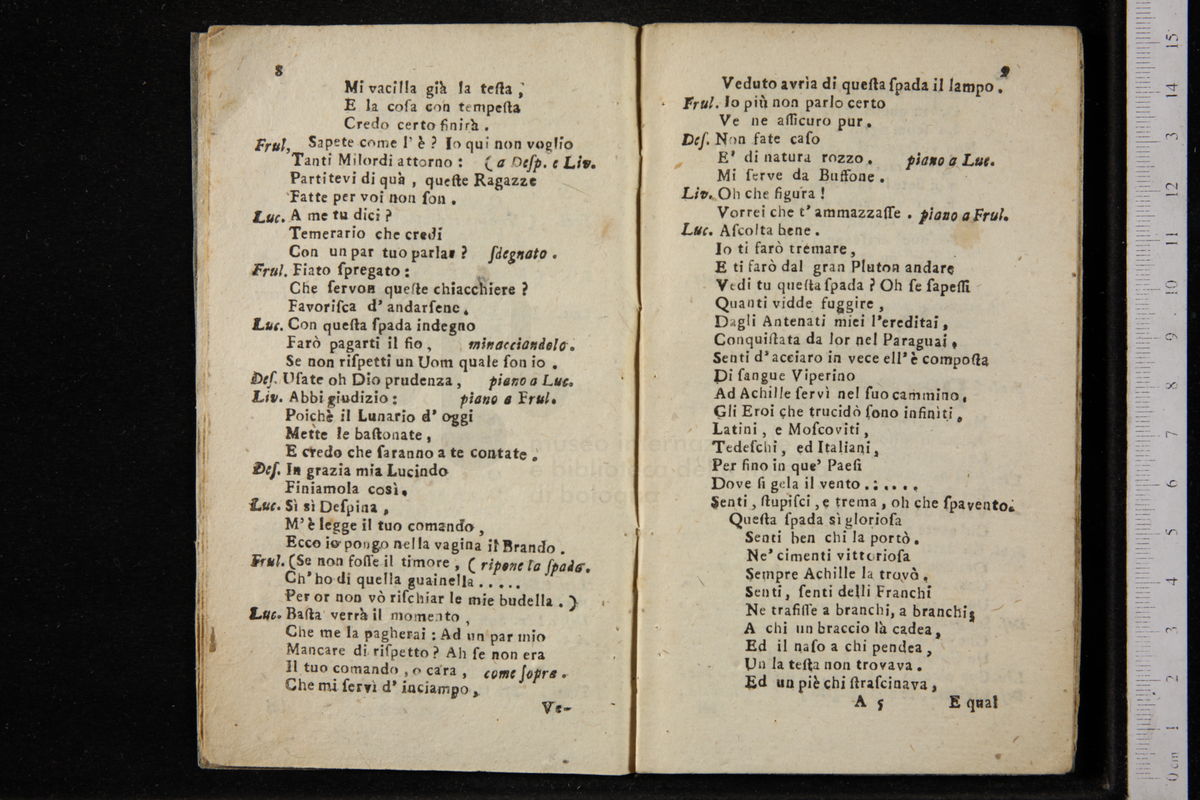 8
Mi vacilla già la teſta ;
E la coſa con tempeſta
Credo certo finirà .
Frul, Sapete come l' è ? Io qui non voglio
Tanti Milordi attorno : ( a Deſp. e Liv.
Partitevi di quà , queſte Ragazze
Fatte per voi non ſon .
Luc. A me tu dici ?
Temerario che credi
Con un par tuo parlar ? ſdegnato .
Frul. Fiato ſpregato :
Che ſervon queſte chiacchiere ?
Favoriſca d' andarſene .
Luc. Con queſta ſpada indegno
Farò pagarti il fio , minacciandolo .
Se non riſpetti un Uom quale ſon io .
Deſ. Uſate oh Dio prudenza , piano a Luc.
Liv. Abbi giudizio : piano a Frul.
Poichè il Lunario d' oggi
Mette le baſtonate ,
E credo che ſaranno a te contate .
Deſ. In grazia mia Lucindo
Finiamola così .
Luc. Sì sì Deſpina ,
M' è legge il tuo comando ,
Ecco io pongo nella vagina il Brando .
Frul. (Se non foſſe il timore , ( ripone la ſpada.
Ch' ho di quella guainella . . . . .
Per or non vò riſchiar le mie budella . )
Luc. Baſta verrà il momento ,
Che me la pagherai : Ad un par mio
Mancare di riſpetto ? Ah ſe non era
Il tuo comando , o cara , come ſopra .
Che mi ſervì d' inciampo ,
Ve-
9
Veduto avrìa di queſta ſpada il lampo .
Frul. Io più non parlo certo
Ve ne aſſicuro pur .
Deſ. Non fate caſo
E' di natura rozzo . piano a Luc.
Mi ſerve da Buffone .
Liv. Oh che figura !
Vorrei che t' ammazzaſſe . piano a Frul.
Luc. Aſcolta bene .
Io ti farò tremare ,
E ti farò dal gran Pluton andare
Vedi tu queſta ſpada ? Oh ſe ſapeſſi
Quanti vidde fuggire ,
Dagli Antenati miei l'ereditai ,
Conquiſtata da lor nel Paraguai ,
Senti d' acciaro in vece ell' è compoſta
Di ſangue Viperino
Ad Achille ſervì nel ſuo cammino ,
Gli Eroi che trucidò ſono infiniti ,
Latini , e Moſcoviti ,
Tedeſchi , ed Italiani ,
Per fino in que' Paeſi
Dove ſi gela il vento . : . . . .
Senti , ſtupiſci , e trema , oh che ſpavento .
Queſta ſpada sì glorioſa
Senti ben chi la portò .
Ne' cimenti vittorioſa
Sempre Achille la trovò .
Senti , ſenti delli Franchi
Ne trafiſſe a branchi, a branchi ;
A chi un braccio là cadea ,
Ed il naſo a chi pendea ,
Un la teſta non trovava .
Ed un piè chi ſtraſcinava ,
A 5 E qual
museo internaz
e biblioteca del
di bologna
0 cm 1 2 3 4 5 6 7 8 9 10 11 12 13 14 15